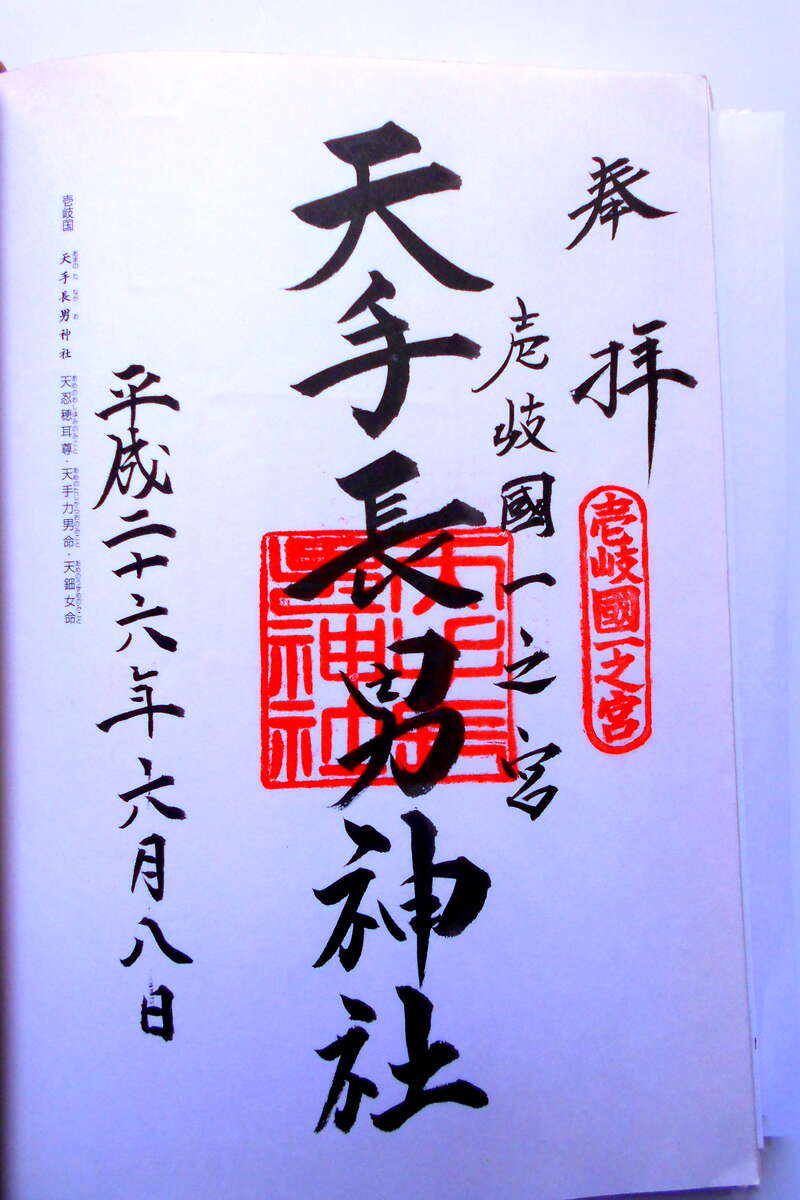 奉拝
壱岐國一之宮
壱岐國一之宮
天手長男神社
天手長男神社
平成二十六年六月八日
壱岐国 天手長男神社 天忍穂耳尊・天手力男命・天鈿女命